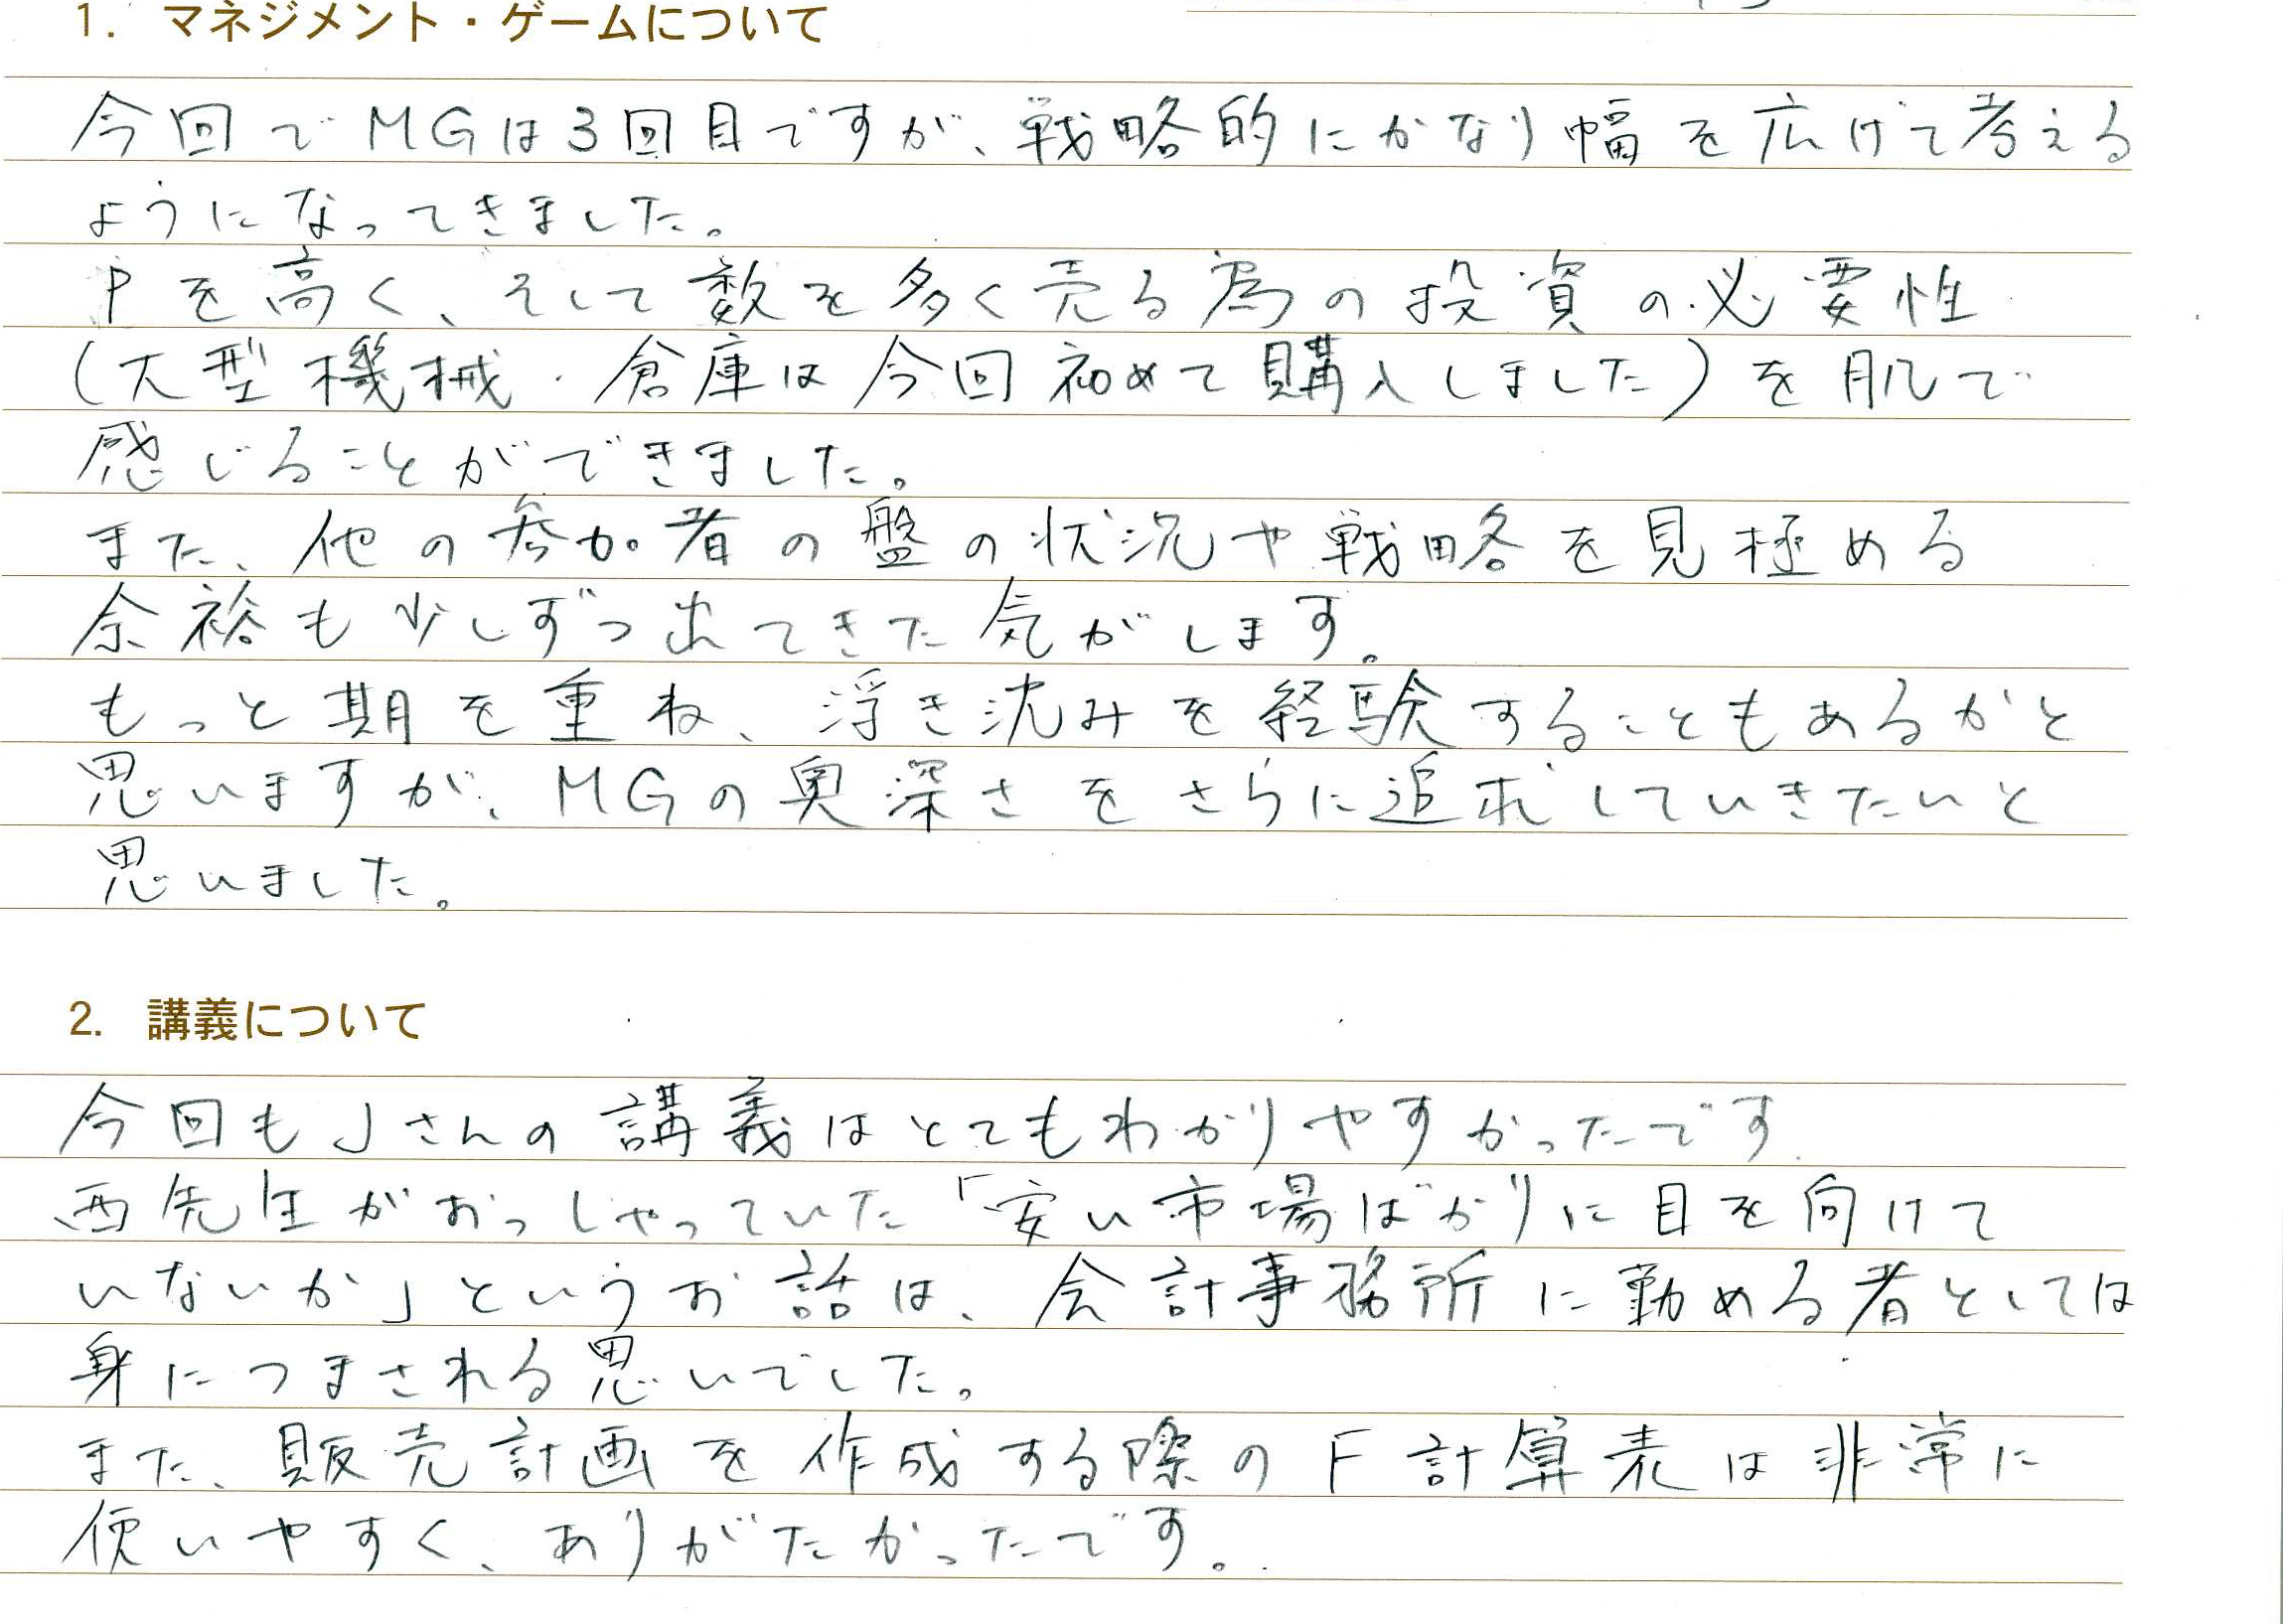 1. マネジメント・ゲームについて
今回でMGは3回目ですが、戦略的にかなり幅を広げて考える
ようになってきました。
Pを高く、そして数を多く売る為の投資の必要性
(大型機械・倉庫は今回初めて購入しました)を肌で
感じることができました。
また、他の参加者の盤の状況や戦略を見極める
余裕も少しずつ出てきた気がします。
もっと期を重ね、浮き沈みを経験することもあるかと
思いますが、MGの奥深さをさらに追求していきたいと
思いました。
2. 講義について
今回もJさんの講義はとてもわかりやすかったです.
西先生がおっしゃっていた「安い市場ばかりに目を向けて
いないか」というお話は、会計事務所に勤める者としては
身につまされる思いでした。
また、販売計画を作成する際のF計算表は非常に
使いやすく、ありがたかったです。